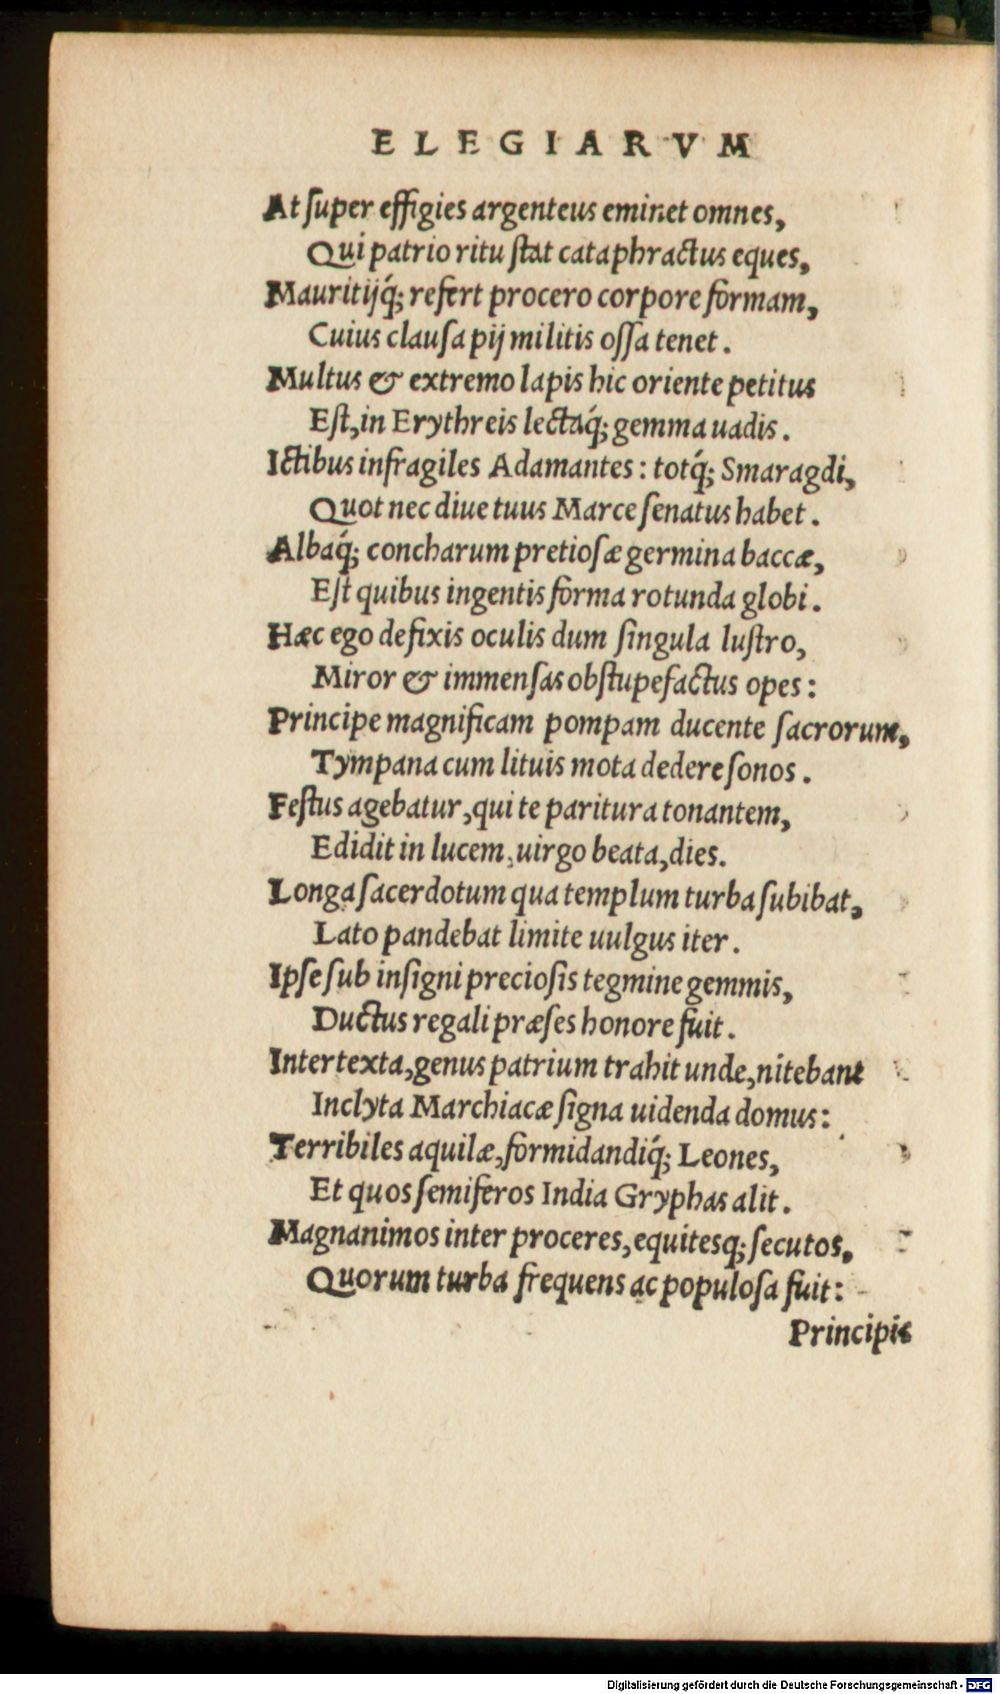 ELEGIARVM
At ſuper effigies argenteus eminet omnes,
Qui patrio ritu ſtat cataphractus eques,
Mauritijq́; refert procero corpore formam,
Cuius clauſa pij militis oſſa tenet.
Multus & extremo lapis hic oriente petitus
Eſt, in Erythreis lectaq́; gemma uadis.
Ictibus infragiles Adamantes: totq́; Smaragdi,
Quot nec diue tuus Marce ſenatus habet.
Albaq́; concharum pretioſæ germina baccæ,
Eſt quibus ingentis forma rotunda globi.
Hæc ego defixis oculis dum ſingula luſtro,
Miror & immenſas obſtupefactus opes:
Principe magnificam pompam ducente ſacrorum,
Tympana cum lituis mota dedere ſonos.
Feſtus agebatur, qui te paritura tonantem,
Edidit in lucem, uirgo beata, dies.
Longa ſacerdotum qua templum turba ſubibat,
Lato pandebat limite uulgus iter.
Ipſe ſub inſigni precioſis tegmine gemmis,
Ductus regali præſes honore fuit.
Intertexta, genus patrium trahit unde, nitebant
Inclyta Marchiacæ ſigna uidenda domus:
Terribiles aquilæ, formidandiq́; Leones,
Et quos ſemiferos India Gryphas alit.
Magnanimos inter proceres, equitesq; ſecutos,
Quorum turba frequens ac populoſa fuit:
Principis
Digitalisierung gefördert durch die Deutsche Forschungsgemeinschaft - DFG